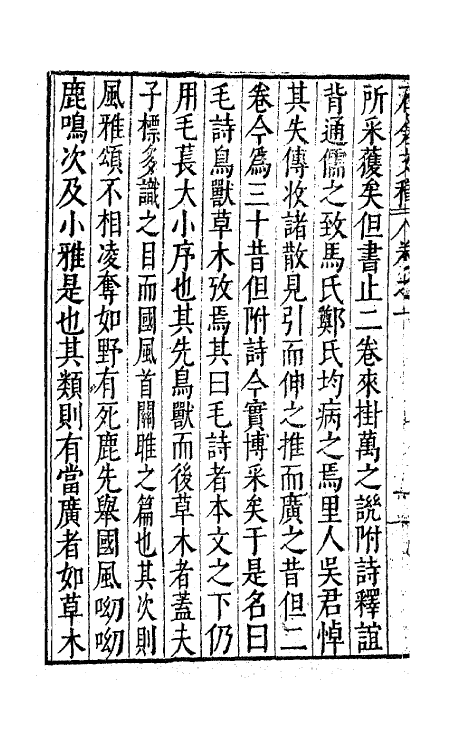 所采獲矣但書止二卷來掛萬之說附詩釋誼
背通儒之致馬氏鄭氏均病之焉里人吳君悼
其失傳收諸散見引而伸之推而廣之昔但二
卷今為三十昔但附詩今實博采矣于是名曰
毛詩鳥獸草木攷焉其曰毛詩者本文之下仍
用毛萇大小序也其先鳥獸而後草木者蓋夫
子標多識之目而國風首關雎之篇也其次則
風雅頌不相凌奪如野有死鹿先舉國風呦呦
鹿鳴次及小雅是也其類則有當廣者如草木